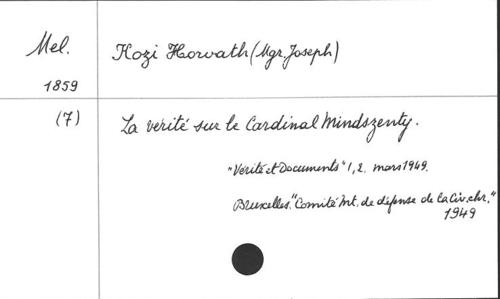 Mel.
1859
(7)
Kozi Horvath (Mgr. Joseph)
La verité sur le Cardinal Mindszenty.
"Verité et Documents" 1, 2. mars 1949.
Bruxelles. "Comité Int. de défense de la Civ. chr."
1949